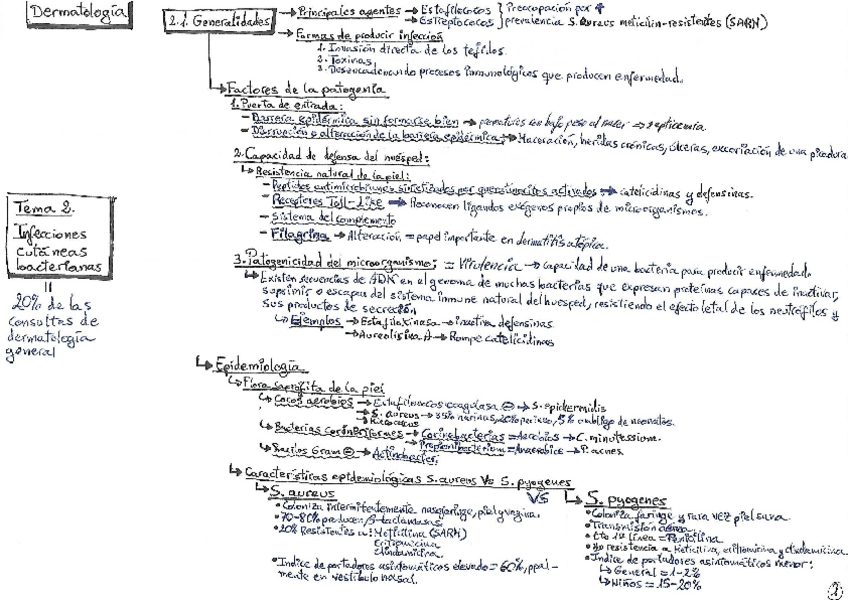 Dermatología
2.1. Generalidades
→ Principales agentes → Estafilococos } Preocupación por ↑
→ Estreptococos } prevalencia S. Aureus meticilin-resistentes (SARM)
→ Formas de producir infección
1. Invasión directa de los tejidos.
2. Toxinas
3. Desencadenando procesos inmunológicos que producen enfermedad.
→ Factores de la patogenia
1. Puerta de entrada:
- Barrera epidérmica sin formarse bien → prematuros con bajo peso al nacer → septicemia.
- Disrupción o alteración de la barrera epidérmica → Maceración, heridas crónicas, úlceras, excoriación de una picadura
2. Capacidad de defensa del huésped:
↳ Resistencia natural de la piel:
- Péptidos antimicrobianos sintetizados por queratinocitos activados → catelicidinas y defensinas.
- Receptores Toll-like → Reconocen ligandos exógenos propios de microorganismos.
- Sistema del complemento
- Filagrina → Alteración = papel importante en dermatitis atópica.
3. Patogenicidad del microorganismo: = Virulencia → capacidad de una bacteria para producir enfermedad.
↳ Existen secuencias de ADN en el genoma de muchas bacterias que expresan proteínas capaces de inactivar,
suprimir o escapar del sistema inmune natural del huésped, resistiendo el efecto letal de los neutrófilos y
sus productos de secreción
↳ Ejemplos → Estafiloxinasa → inactiva defensinas
→ Aureolisina A → Rompe catelicidinas
Tema 2.
Infecciones
cutáneas
bacterianas
||
20% de las
consultas de
dermatología
general
↳ Epidemiología
↳ Flora saprófita de la piel
↳ Cocos aerobios → Estafilococos coagulasa ⊖ → S. epidermidis
→ S. aureus → 35% narinas, 20% perineo, 5% ombligo de neonatos.
→ Micrococcus
↳ Bacterias corineiformes → Corinebacterias = Aerobios → C. minutessism.
→ Propionibacterium = Anaerobios → P. acnes.
↳ Bacilos Gram ⊖ → Actinobacter.
↳ Características epidemiológicas S. aureus Vs S. pyogenes
↳ S. aureus
• Coloniza intermitentemente nasofaringe, piel y vagina.
• 70-80% producen β-lactamasas.
• 20% Resistentes a: Meticilina (SARM)
Eritromicina
Clindamicina.
• Indice de portadores asintomáticos elevado = 60%, ppal-
mente en vestíbulo nasal.
VS
↳ S. pyogenes
• Coloniza faringe y rara vez piel sana.
• Transmisión aérea.
• tto 1ª línea = Penicilina
• No resistencia a Meticilina, eritromicina y clindamicina.
• Indice de portadores asintomáticos menor:
↳ General = 1-2%
↳ Niños = 15-20%
1